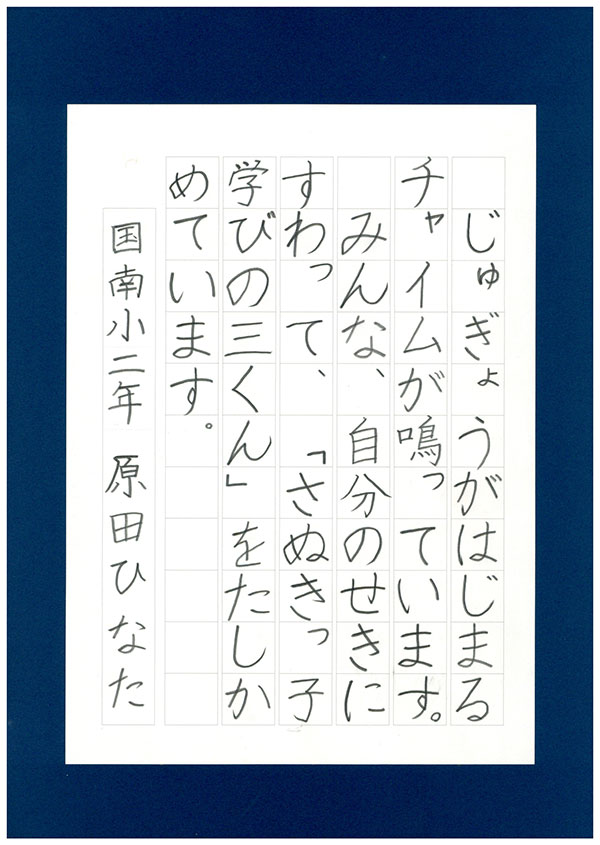 じゅぎょうがはじまる
チャイムが鳴っています。
みんな、自分のせきに
すわって、「さぬきっ子
学びの三くん」をたしか
めています。
国南小二年 原田ひなた